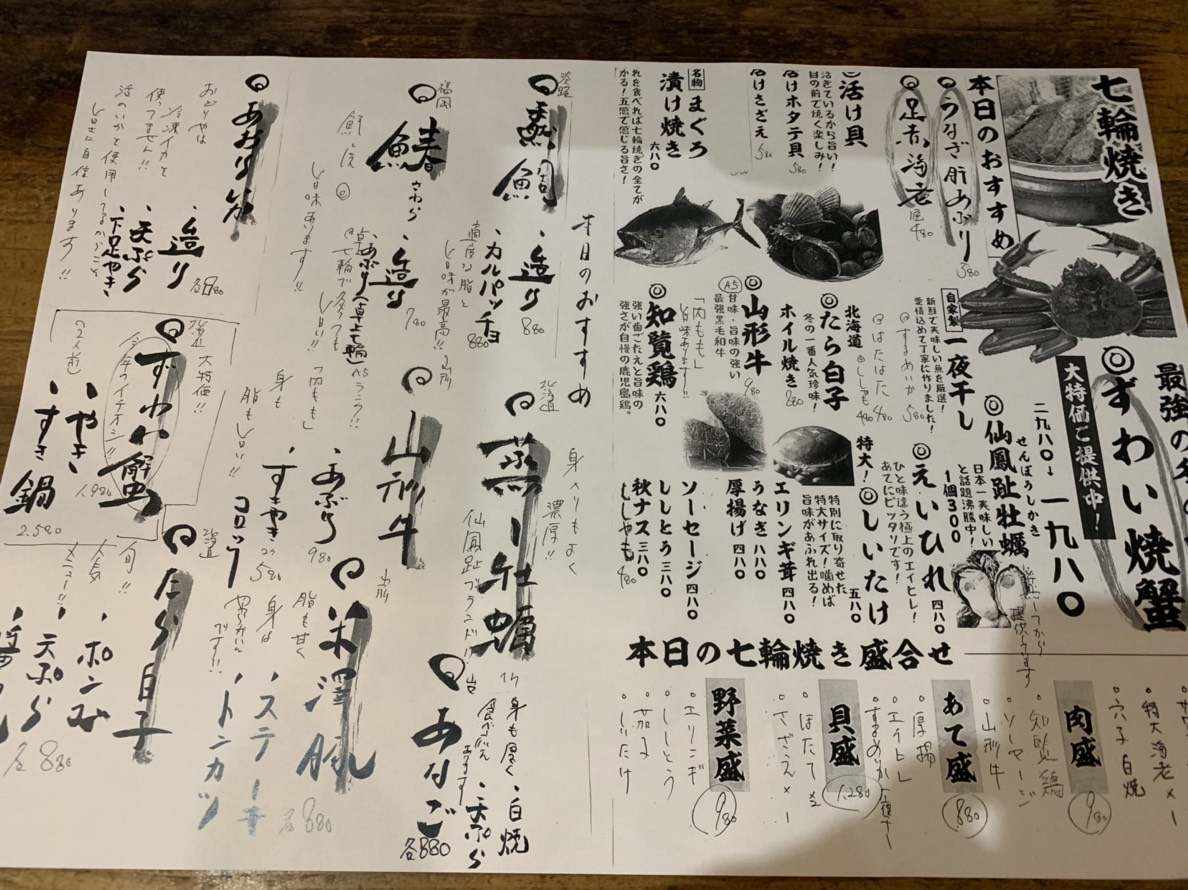 七輪焼き
最強の
◎ずわい焼蟹
大特価ご提供中！
二九八〇→一九八〇
本日のおすすめ
うなぎ肝あぶり
580
足赤海老
480
自家製 一夜干し
新鮮で美味しい魚を厳選！
愛情込めて丁寧に作りました！
◎するめいか 580
◎はたはた 480
せんぽうしかき
◎仙鳳趾牡蠣
日本一美味しい
と話題沸騰中！
1個300
◎えいひれ 四八〇
ひと味違う極上のエイヒレ！
あてにピッタリです！
特大！◎しいたけ 五八〇
特別に取り寄せた
特大サイズ！噛めば
旨味があふれ出る！
◎活け貝
活きているから旨い！
目の前で焼く楽しみ！
活けホタテ貝 580
活けさざえ 580
名物 まぐろ
漬け焼き 六八〇
れを食べれば七輪焼きの全てが
かる！五感で感じる旨さ！
北海道
◎たら白子
冬の一番人気珍味！
ホイル焼き 880
◎山形牛 980
A5
甘味・旨味の強い
最強黒毛和牛
「内もも」
旨味あります！
◎知覧鶏 六八〇
強い歯ごたえと旨味の
強さが自慢の鹿児島鶏。
エリンギ茸 四八〇
うなぎ 八八〇
厚揚げ 四八〇
ソーセージ 四八〇
ししとう 三八〇
秋ナス 三八〇
ししゃも 480
本日の七輪焼き盛合せ
特大海老×1
穴子白焼
肉盛 980
知覧鶏
ソーセージ
山形牛
あて盛 880
厚揚
エイヒレ
するめいか一夜干し
貝盛 1,280
ほたて×2
さざえ×1
野菜盛 980
エリンギ
ししとう
茄子
しいたけ
本日のおすすめ
淡路
・造り 880
・カルパッチョ 880
適度な脂と
旨味が最高!!
福岡
鰆 さわら
・造り 780
・あぶり（卓上七輪）
鮮度◎
旨味あります!!
@七輪で炙っても
旨い!!
◎あおりいか
・造り
・天ぷら
・下足やき
各980
おおりやは
冷凍イカを
使ってません!!
活のいかを使用してるからこそ
旨さに自信あります!!
北海道
蒸し牡蠣
身入りもよく
濃厚!!
仙鳳趾ブランド!!
山形
山形牛
A5ランク!!
「内もも」
身も
脂も旨い!!
・あぶり 980
・すきやき
コロッケ 2ケ 580
北海道
大特価!!
ずわい蟹
今年のイチオシ!!
・やき 1,980
・すき鍋 2,580
◎あなご
身も厚く
食べごたえ
あります
・白焼
・天ぷら
各880
山形
◎米澤豚
脂も甘く
身は
やわらかい
です!!
・ステーキ
・トンカツ
各880
北海道
◎たら白子
旬!!
人気
メニュー!!
・ポン酢
・天ぷら
各880